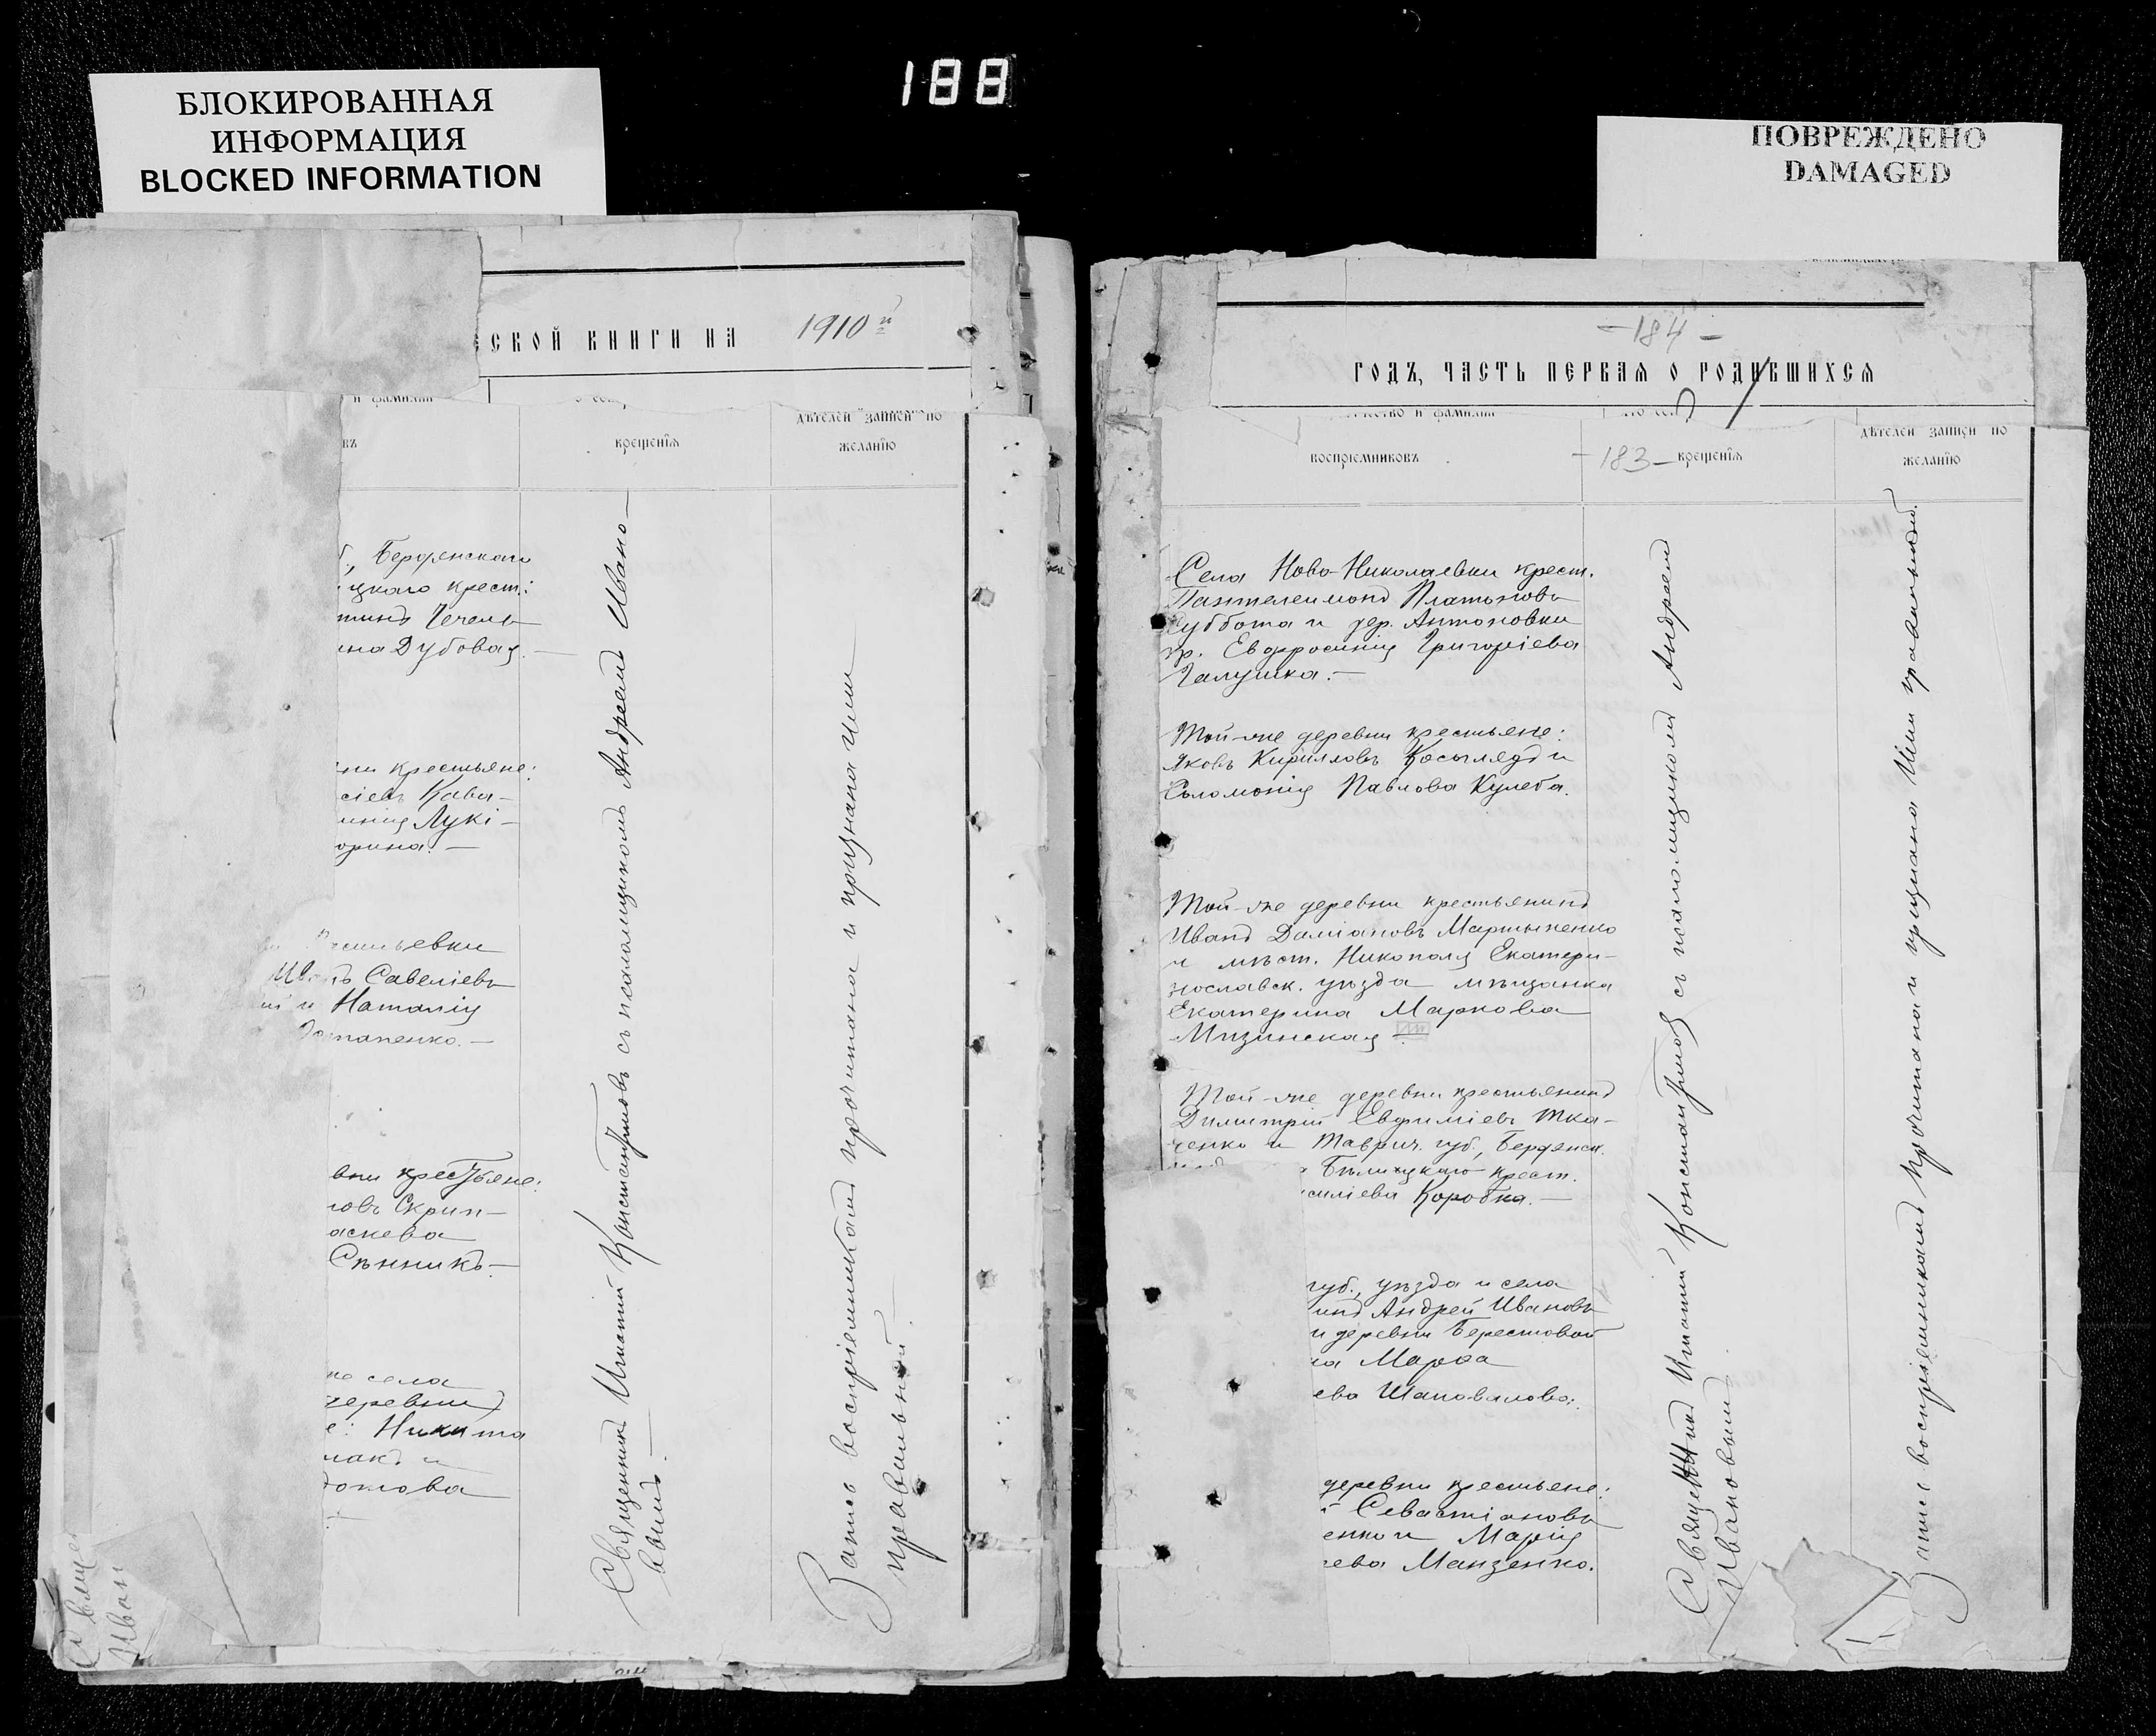 188
БЛОКИРОВАННАЯ
ИНФОРМАЦИЯ
BLOCKED INFORMATION
ПОВРЕЖДЕНО
DAMAGED
ЕСКОЙ КНИГИ НА 1910й
и фамилия
въ
крещенїя
дѣтелей записи по
желанїю
Бердянскаго
цкаго крест.:
тинъ Чечель
ина Дубовая.—
ни крестьяне:
сіевъ Кави-
инія Лукі-
орина.—
евки
Савеліевъ
и Наталія
Остапенко.—
вни крестьяне:
новъ Скрип-
аскева
Сѣнникъ.—
же села
деревни
е: Никита
макъ и
отова
Священникъ Игнатій Константиновъ съ псаломщикомъ Андреемъ Ивано-
вымъ.—
Запись воспріемникамъ прочитана и признана ими
правильной.
Свяще
Иван
—184—
ГОДЪ, ЧАСТЬ ПЕРВАЯ О РОДИВШИХСЯ
ество и фамилия
воспрїемниковъ
—183—
крещенїя
дѣтелей записи по
желанїю
Села Ново-Николаевки крест.
Пантелеимонъ Платоновъ
Суббота и дер. Антоновки
кр. Евфросинія Григоріева
Галушка.—
Той-же деревни крестьяне:
Яковъ Кирилловъ Косылядъ и
Соломонія Павлова Кулеба.
Той-же деревни крестьянинъ
Иванъ Даміановъ Мартыненко
и мѣст. Никополя Екатери-
нославск. уѣзда мѣщанка
Екатерина Маркова
Мизинская
Той-же деревни крестьянинъ
Димитрій Евфиміевъ Тка-
ченко и Таврич. губ., Бердянск.
Бѣлицкаго крест.
силіева Коробка.—
губ., уѣзда и села
инъ Андрей Ивановъ
и деревни Берестовой
на Марфа
ева Шаповалова.
деревни крестьяне:
й Севастіановъ
енко и Марія
ева Манзенко.
Священникъ Игнатій Константиновъ съ псаломщикомъ Андреемъ
Ивановымъ.
Запись воспріемникамъ прочитана и признана ими правильной.